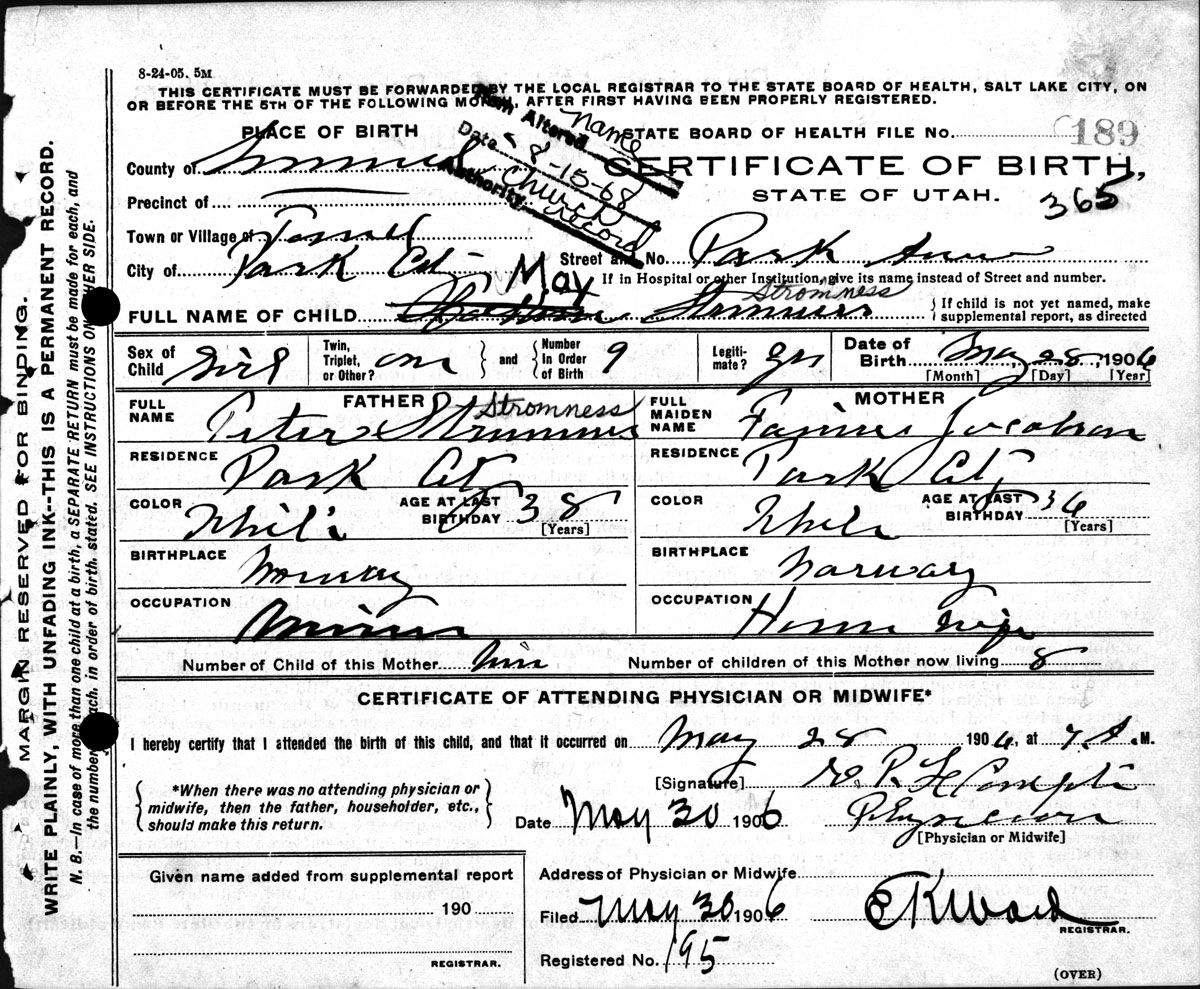 8-24-05. 5M
THIS CERTIFICATE MUST BE FORWARDED BY THE LOCAL REGISTRAR TO THE STATE BOARD OF HEALTH, SALT LAKE CITY, ON
OR BEFORE THE 5TH OF THE FOLLOWING MONTH, AFTER FIRST HAVING BEEN PROPERLY REGISTERED.
PLACE OF BIRTH
Item Altered name
Date 8-15-68
Authority Church Record
STATE BOARD OF HEALTH FILE NO. 189
CERTIFICATE OF BIRTH,
STATE OF UTAH.
365
County of Summit
Precinct of
Town or Village of
City of Park City
Street and No. Park Ave
If in Hospital or other Institution, give its name instead of Street and number.
May
Stromness
FULL NAME OF CHILD
If child is not yet named, make supplemental report, as directed
Sex of Child Girl
Twin, Triplet, or Other? one
and
Number In Order of Birth 9
Legitimate? yes
Date of Birth May 28, 1906
[Month] [Day] [Year]
FATHER
FULL NAME Peter Stromness
RESIDENCE Park City
COLOR White AGE AT LAST BIRTHDAY 38
[Years]
BIRTHPLACE Norway
OCCUPATION Miner
MOTHER
FULL MAIDEN NAME Jacobson
RESIDENCE Park City
COLOR White AGE AT LAST BIRTHDAY 36
[Years]
BIRTHPLACE Norway
OCCUPATION House wife
Number of Child of this Mother Nine Number of children of this Mother now living 8
CERTIFICATE OF ATTENDING PHYSICIAN OR MIDWIFE*
I hereby certify that I attended the birth of this child, and that it occurred on May 28 1906, at 7 A. M.
*When there was no attending physician or
midwife, then the father, householder, etc.,
should make this return.
[Signature] LeCompte
Date May 30 1906 Physician
[Physician or Midwife]
Given name added from supplemental report
190
REGISTRAR.
Address of Physician or Midwife
Filed May 30 1906 E K Ward
REGISTRAR.
Registered No. 195
(OVER)
MARGIN RESERVED FOR BINDING.
WRITE PLAINLY, WITH UNFADING INK--THIS IS A PERMANENT RECORD.
N. B.—In case of more than one child at a birth, a SEPARATE RETURN must be made for each, and
the number of each, in order of birth, stated. SEE INSTRUCTIONS ON OTHER SIDE.